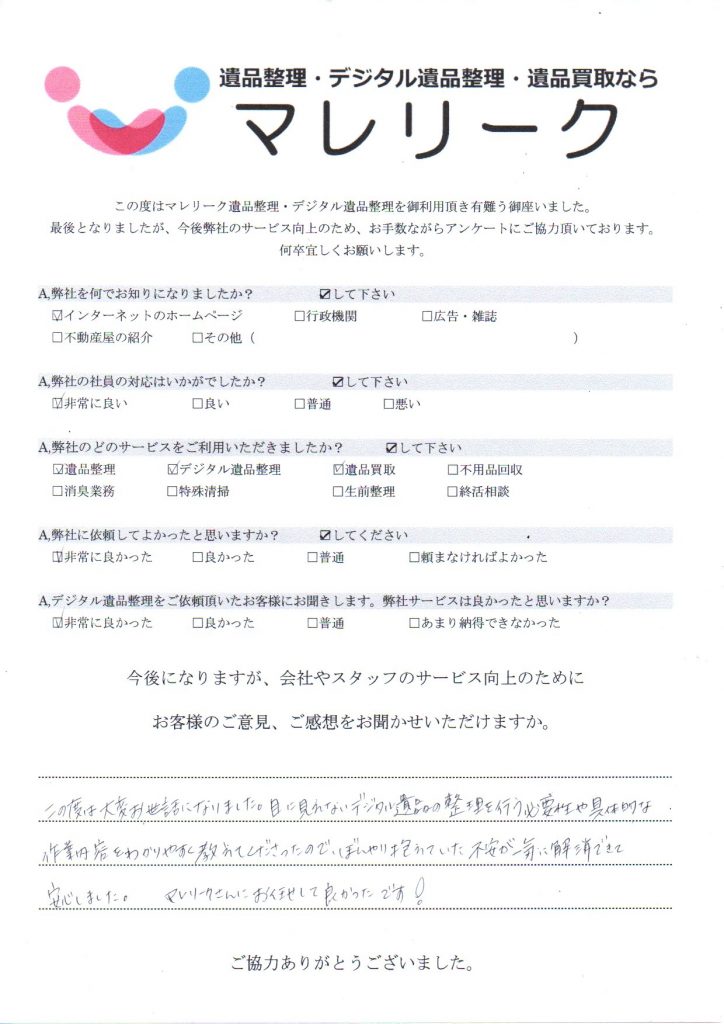 遺品整理・デジタル遺品整理・遺品買取なら
マレリーク
この度はマレリーク遺品整理・デジタル遺品整理を御利用頂き有難う御座いました。
最後となりましたが、今後弊社のサービス向上のため、お手数ながらアンケートにご協力頂いております。
何卒宜しくお願いします。
A,弊社を何でお知りになりましたか? ☑して下さい
☑インターネットのホームページ □行政機関 □広告・雑誌
□不動産屋の紹介 □その他( )
A,弊社の社員の対応はいかがでしたか? ☑して下さい
☑非常に良い □良い □普通 □悪い
A,弊社のどのサービスをご利用いただきましたか? ☑して下さい
☑遺品整理 ☑デジタル遺品整理 ☑遺品買取 □不用品回収
□消臭業務 □特殊清掃 □生前整理 □終活相談
A,弊社に依頼してよかったと思いますか? ☑してください
☑非常に良かった □良かった □普通 □頼まなければよかった
A,デジタル遺品整理をご依頼頂いたお客様にお聞きします。弊社サービスは良かったと思いますか?
☑非常に良かった □良かった □普通 □あまり納得できなかった
今後になりますが、会社やスタッフのサービス向上のために
お客様のご意見、ご感想をお聞かせいただけますか。
この度は大変お世話になりました。目に見えないデジタル遺品の整理を行う必要性や具体的な
作業内容をわかりやすく教えてくださったので、ぼんやり抱えていた不安が一気に解消できて
安心しました。 マレリークさんにお任せして良かったです!
ご協力ありがとうございました。